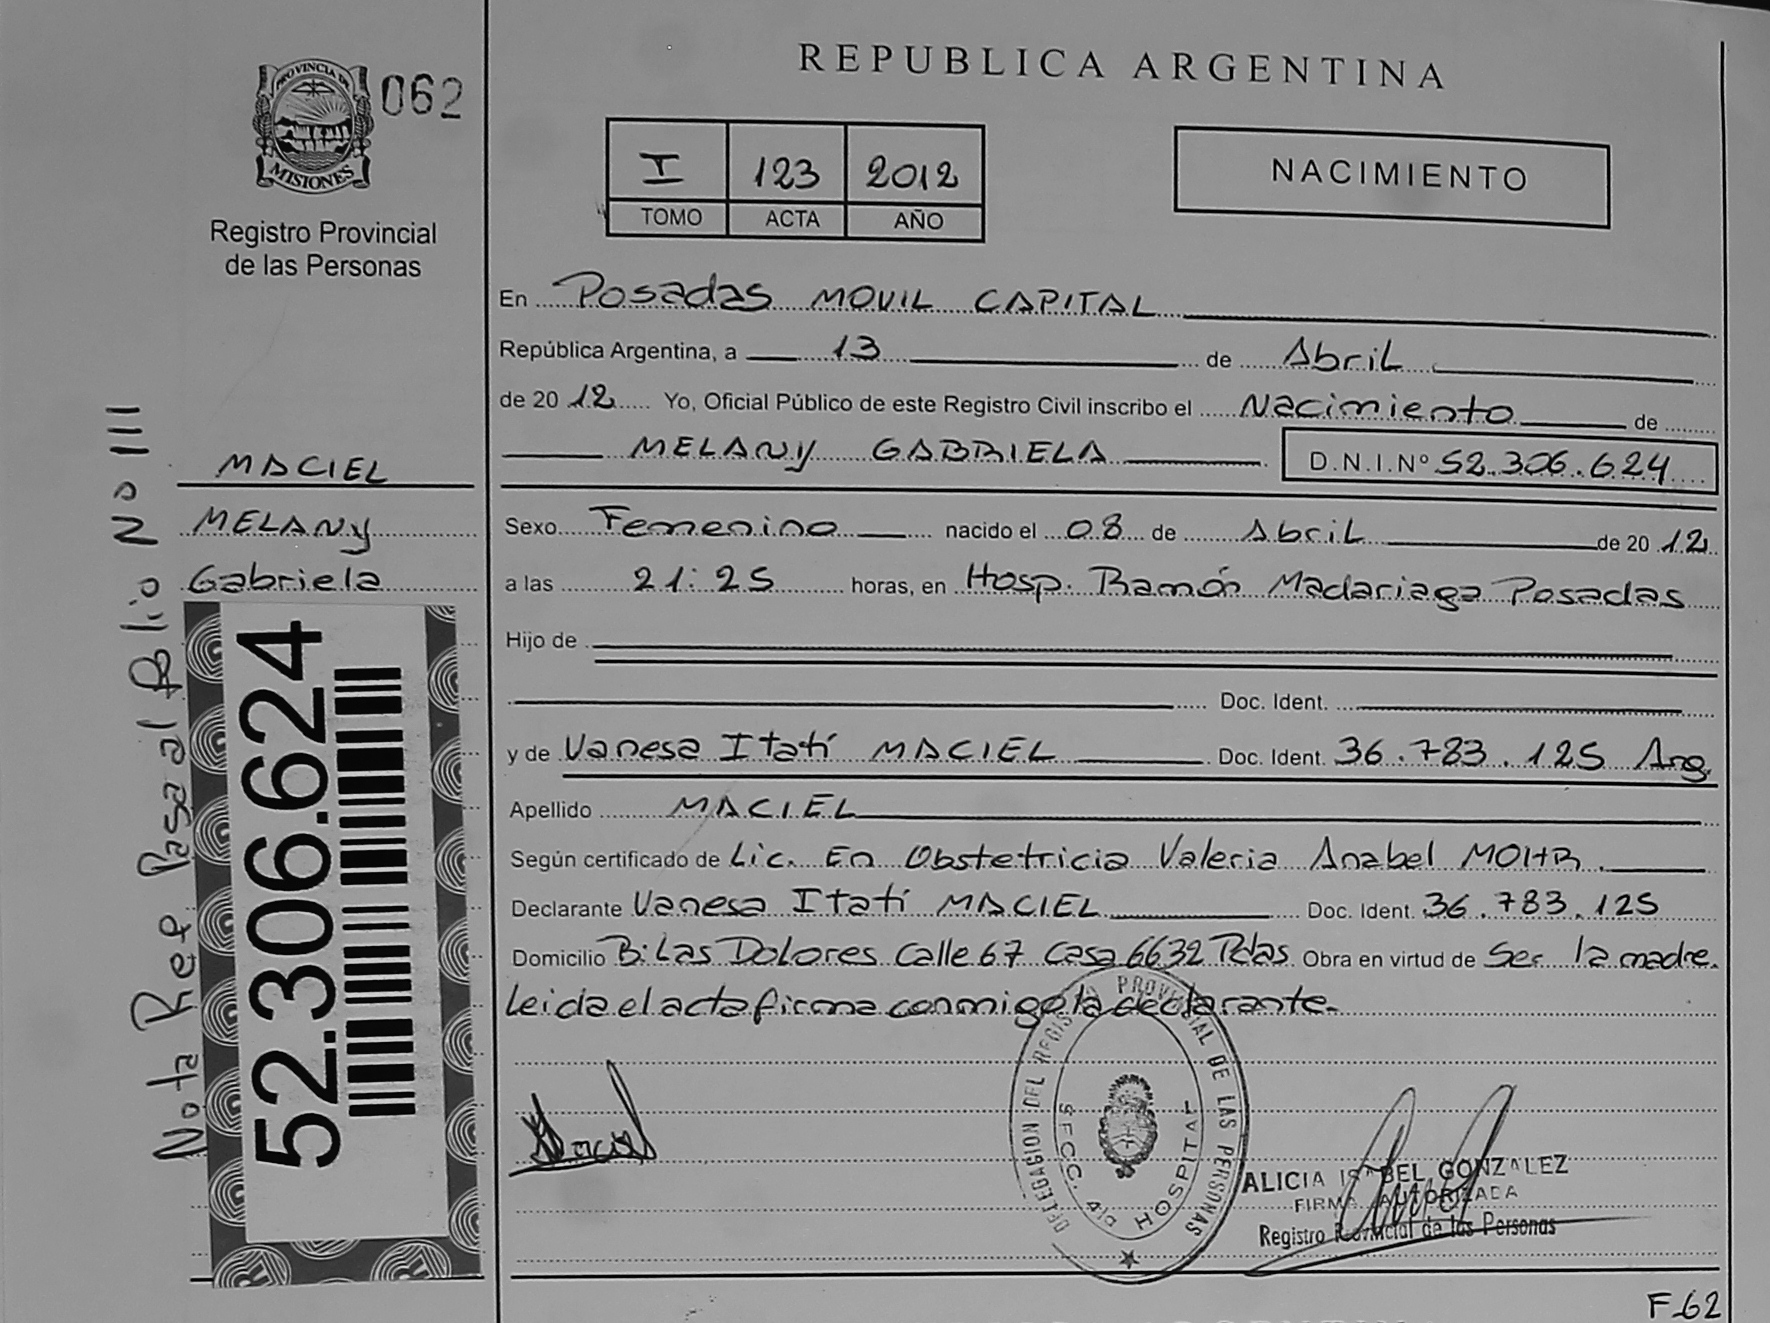 PROVINCIA DE
MISIONES
062
Registro Provincial
de las Personas
MACIEL
MELANY
Gabriela
52.306.624
Nota Ref Pasa al Folio No 111
REPUBLICA ARGENTINA
I 123 2012
TOMO ACTA AÑO
NACIMIENTO
En Posadas MOVIL CAPITAL
República Argentina, a 13 de Abril
de 2012 Yo, Oficial Público de este Registro Civil inscribo el Nacimiento de
MELANY GABRIELA D.N.I.Nº 52.306.624
Sexo Femenino nacido el 08 de Abril de 2012
a las 21:25 horas, en Hosp. Ramón Madariaga Posadas
Hijo de
Doc. Ident.
y de Vanesa Itatí MACIEL Doc. Ident. 36.783.125 Arg.
Apellido MACIEL
Según certificado de Lic. En Obstetricia Valeria Anabel MOHR.
Declarante Vanesa Itatí MACIEL Doc. Ident. 36.783.125
Domicilio B: Las Dolores Calle 67 Casa 6632 Pdas. Obra en virtud de Ser la madre.
Leida el acta firma conmigo la declarante.
Maciel
DELEGASION DEL REGISTRO PROVINCIAL DE LAS PERSONAS
SECC. 4ta HOSPITAL
ALICIA ISABEL GONZALEZ
FIRMA AUTORIZADA
Registro Provincial de las Personas
F-62